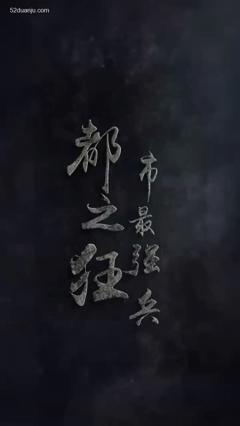 52duanju.com
都市
之最
狂强
兵